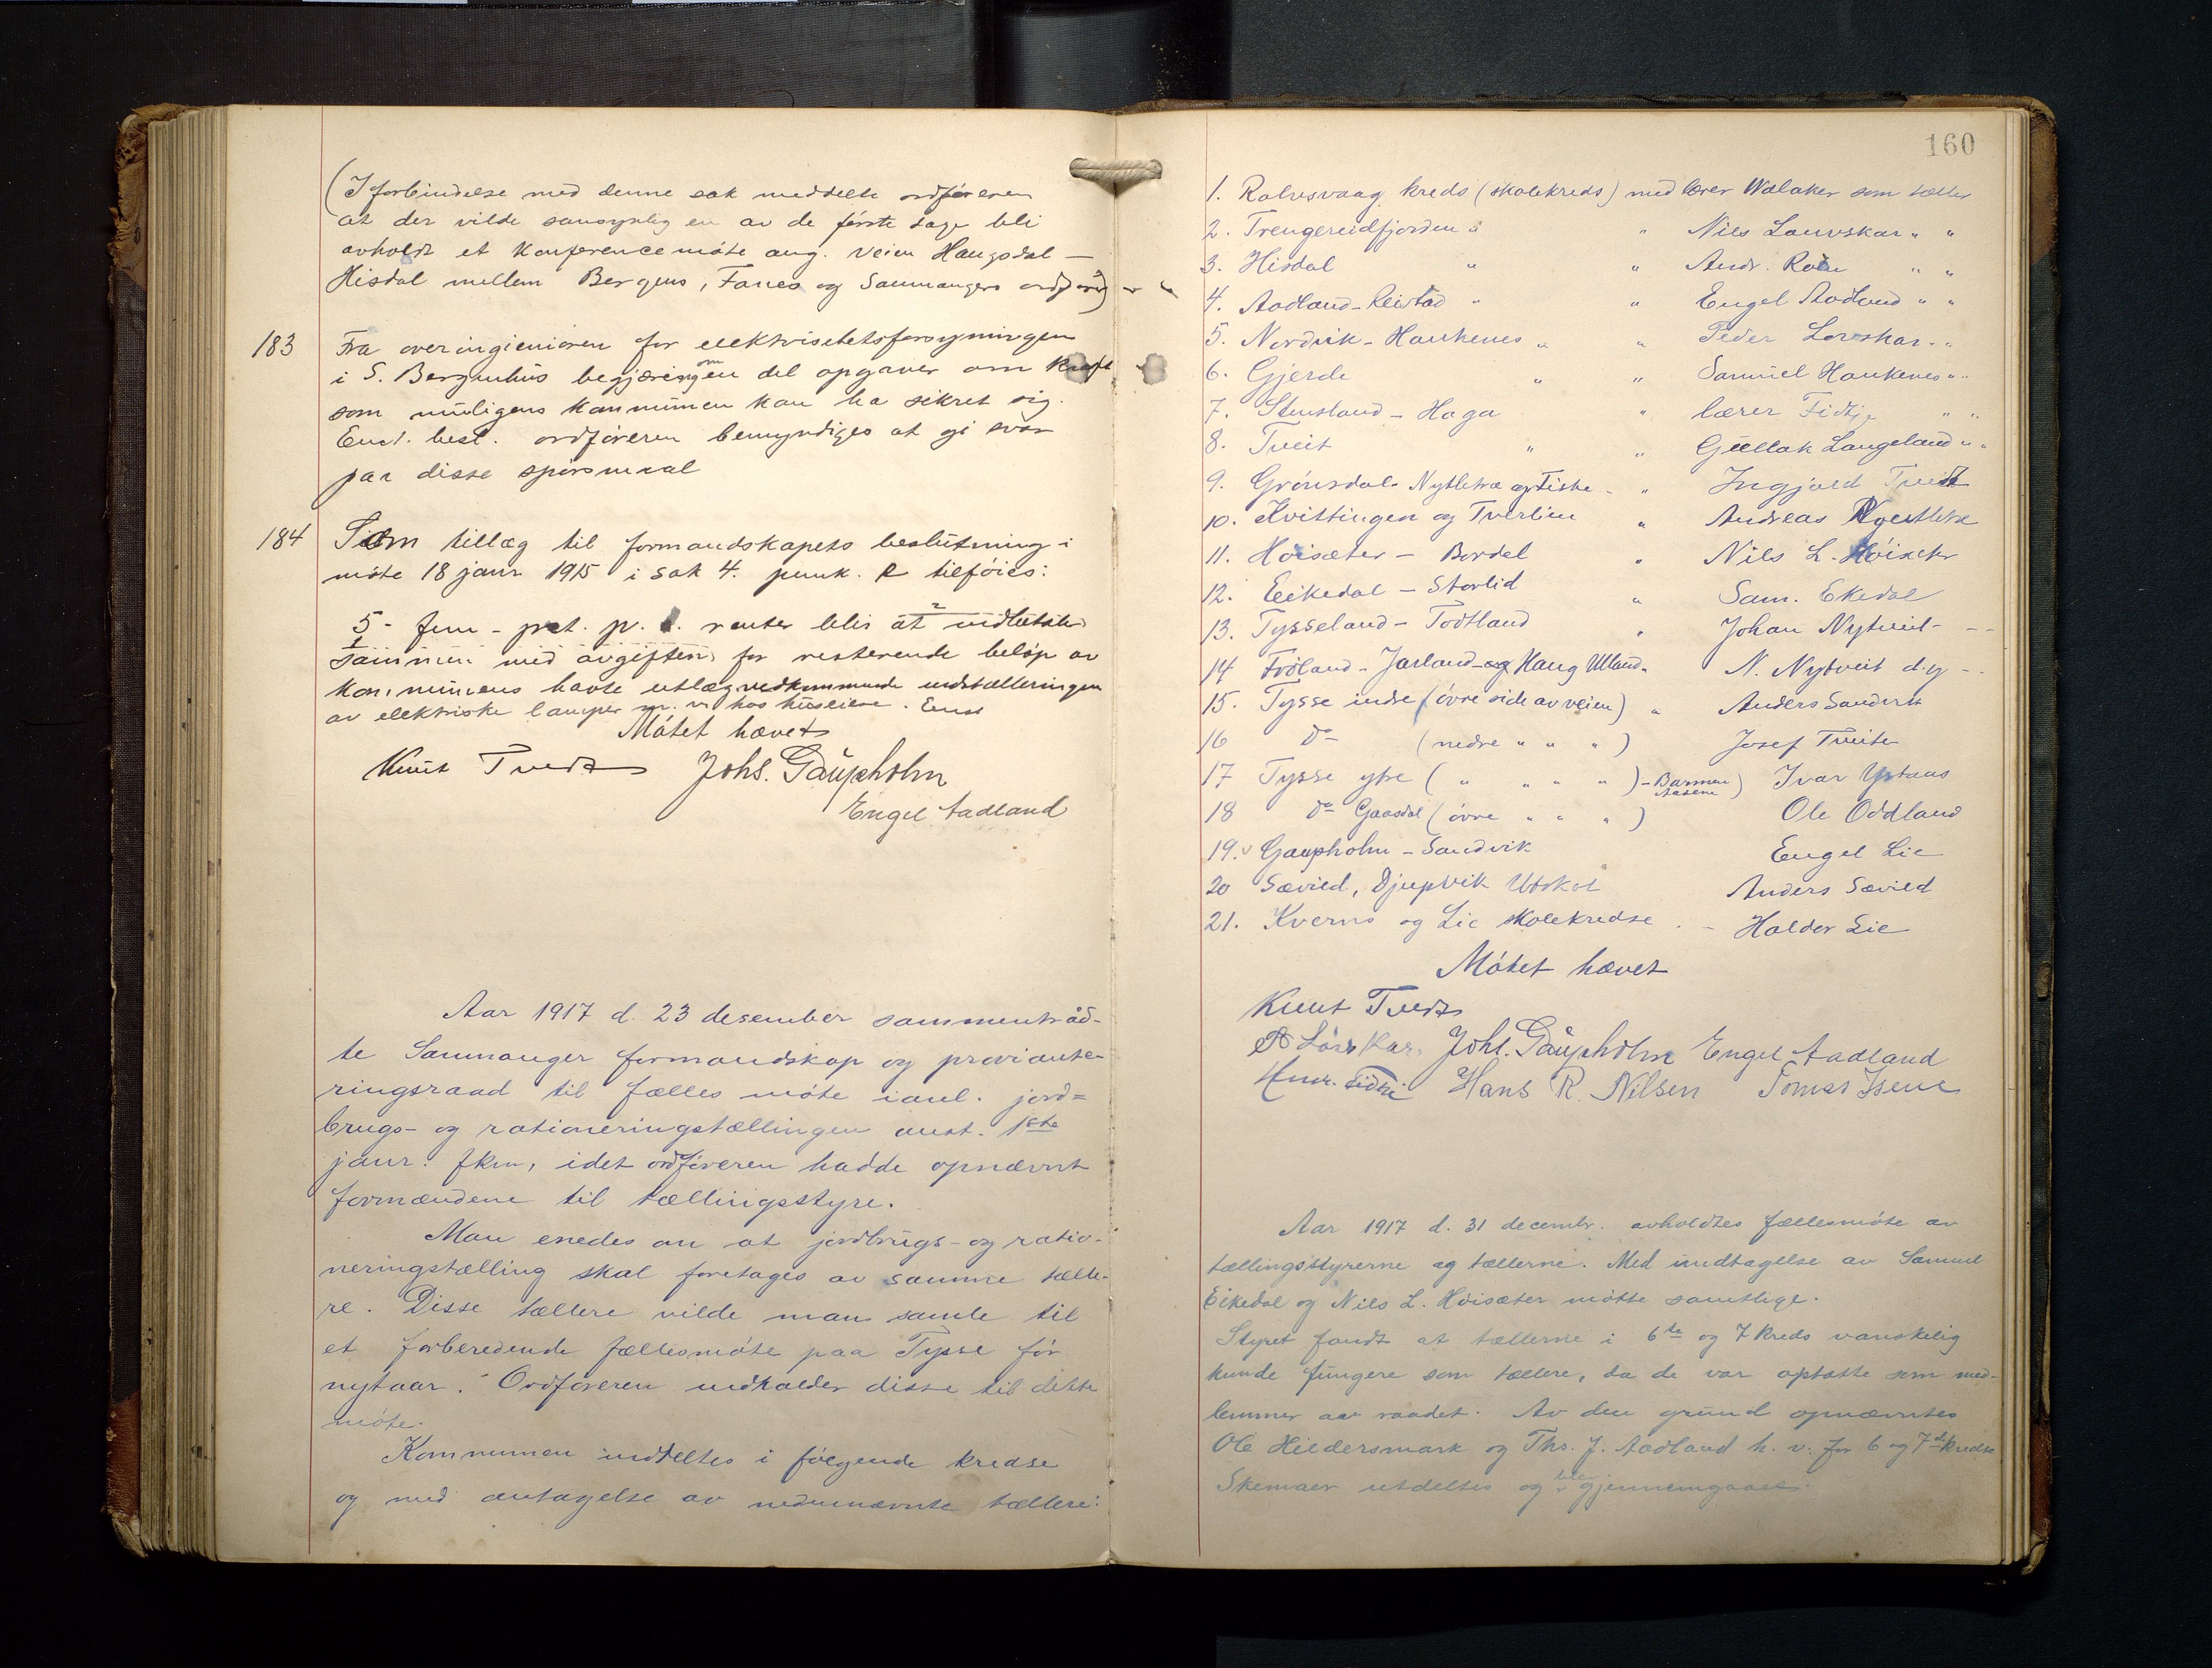 (I forbindelse med denne sak meddelte ordføreren
at der vilde sansynlig en av de første dage bli
avholdt et konferencemøte ang. veien Haugsdal –
Hisdal mellem Bergens, Fanes og Samnangers
183 Fra overingieniøren for elektrisitetsforsyningen
i S. Bergenhus begjæring om en del opgaver om kraft
som muligens kommunen kan ha sikret sig.
Enst. besl. ordføreren bemyndiges at gi svar
paa disse spørsmaal
184 Som tillæg til formandskapets beslutning i
møte 18 janr 1915 i sak 4. punk. tilføies:
5 - fem - pct. p. renter blir at indbetale
sammen med avgiften for resterende beløp av
kommunens havte utlæg vedkommende indstalleringen
av elektriske lamper m. v. hos huseiere. Enst
Møtet hævet
Knut Tvedt Johs. Gaupholm
Engel Aadland
Aar 1917 d. 23 desember sammentråd-
te Samnanger formandskap og provianter-
ringsraad til fælles møte i anl. jord=
brugs- og rationeringstællingen anst. 1ste
janr. fkm, idet ordføreren hadde opnævnt
formændene til tællingsstyre.
Man enedes om at jordbrugs- og ratio-
neringstælling skal foretages av samme tælle-
re. Disse tællere vilde man samle til
et forberedende fællesmøte paa Tysse før
nytaar. Ordføreren indkalder disse til dette
møte.
Kommunen inddeltes i følgende kredse
og med antagelse av nedennævnte tællere:
160
1. Rolvsvaag kreds (skolekreds) med lærer Walaker som tæller
2. Trengereidfjorden " " Nils Lauvskar " "
3. Hisdal " " Andr. Roen " "
4. Aadland-Reistad " " Engel Aadland " "
5. Nordvik - Haukenes " " Peder Lørskar " "
6. Gjerde " " Samuel Haukenes " "
7. Stensland - Haga " lærer Fidtje " "
8. Tveit " " Gullak Langeland " "
9. Grønsdal- Nyttetræ og Fiske - " Ingjald Tveit
10. Kvittingen og Tverlien " Andreas
11. Høisæter - Bordal " Nils L. Høisæter
12. Eikedal - Storlid " Sam. Ekedal
13. Tysseland - Todtland " Johan Nytveit - -
14 Frøland - Jarland og Haug Ulland " N. Nytveit d.y -
15. Tysse indre (øvre side av veien) " Anders Sandvik
16 Do (nedre " " ") Josef Tveiten
17 Tysse ytre ( " " " " ) - Barmen Aasene) Ivar Ystaas
18 Do Gaasdal (øvre " " ") Ole Oddland
19. Gaupholm - Sandvik Engel Lie
20 Sævild, Djupvik Utskot Anders Sævild
21. Kverns og Lie skolekredse . - Haldor Lie
Møtet hævet
Knut Tvedt
P Lørskar, Johs. Gaupholm Engel Aadland
Hans R. Nilsen Tomas Isene
Aar 1917 d. 31 decembr. avholdtes fællesmøte av
tællingsstyrerne og tællerne. Med undtagelse av Samuel
Eikedal og Nils L. Høisæter møtte samtlige.
Styret fandt at tællerne i 6te og 7 kreds vanskelig
kunde fungere som tællere, da de var optatte som med-
lemmer av raadet. Av den grund opnævntes
Ole Hildersmark og Ths. J. Aadland h. v. for 6 og 7de kredse
Skemaer utdeltes og blev gjennemgaaet.